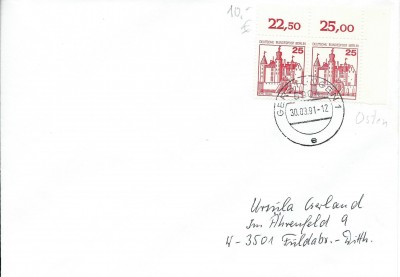 10,-
22,50 25,00
DEUTSCHE BUNDESPOST BERLIN DEUTSCHE BUNDESPOST BERLIN
25 25
30.03.91-12
e
Osten
Ursula Gerland
Im Ährenfeld 9
W-3501 Fuldabr.-Ditth.